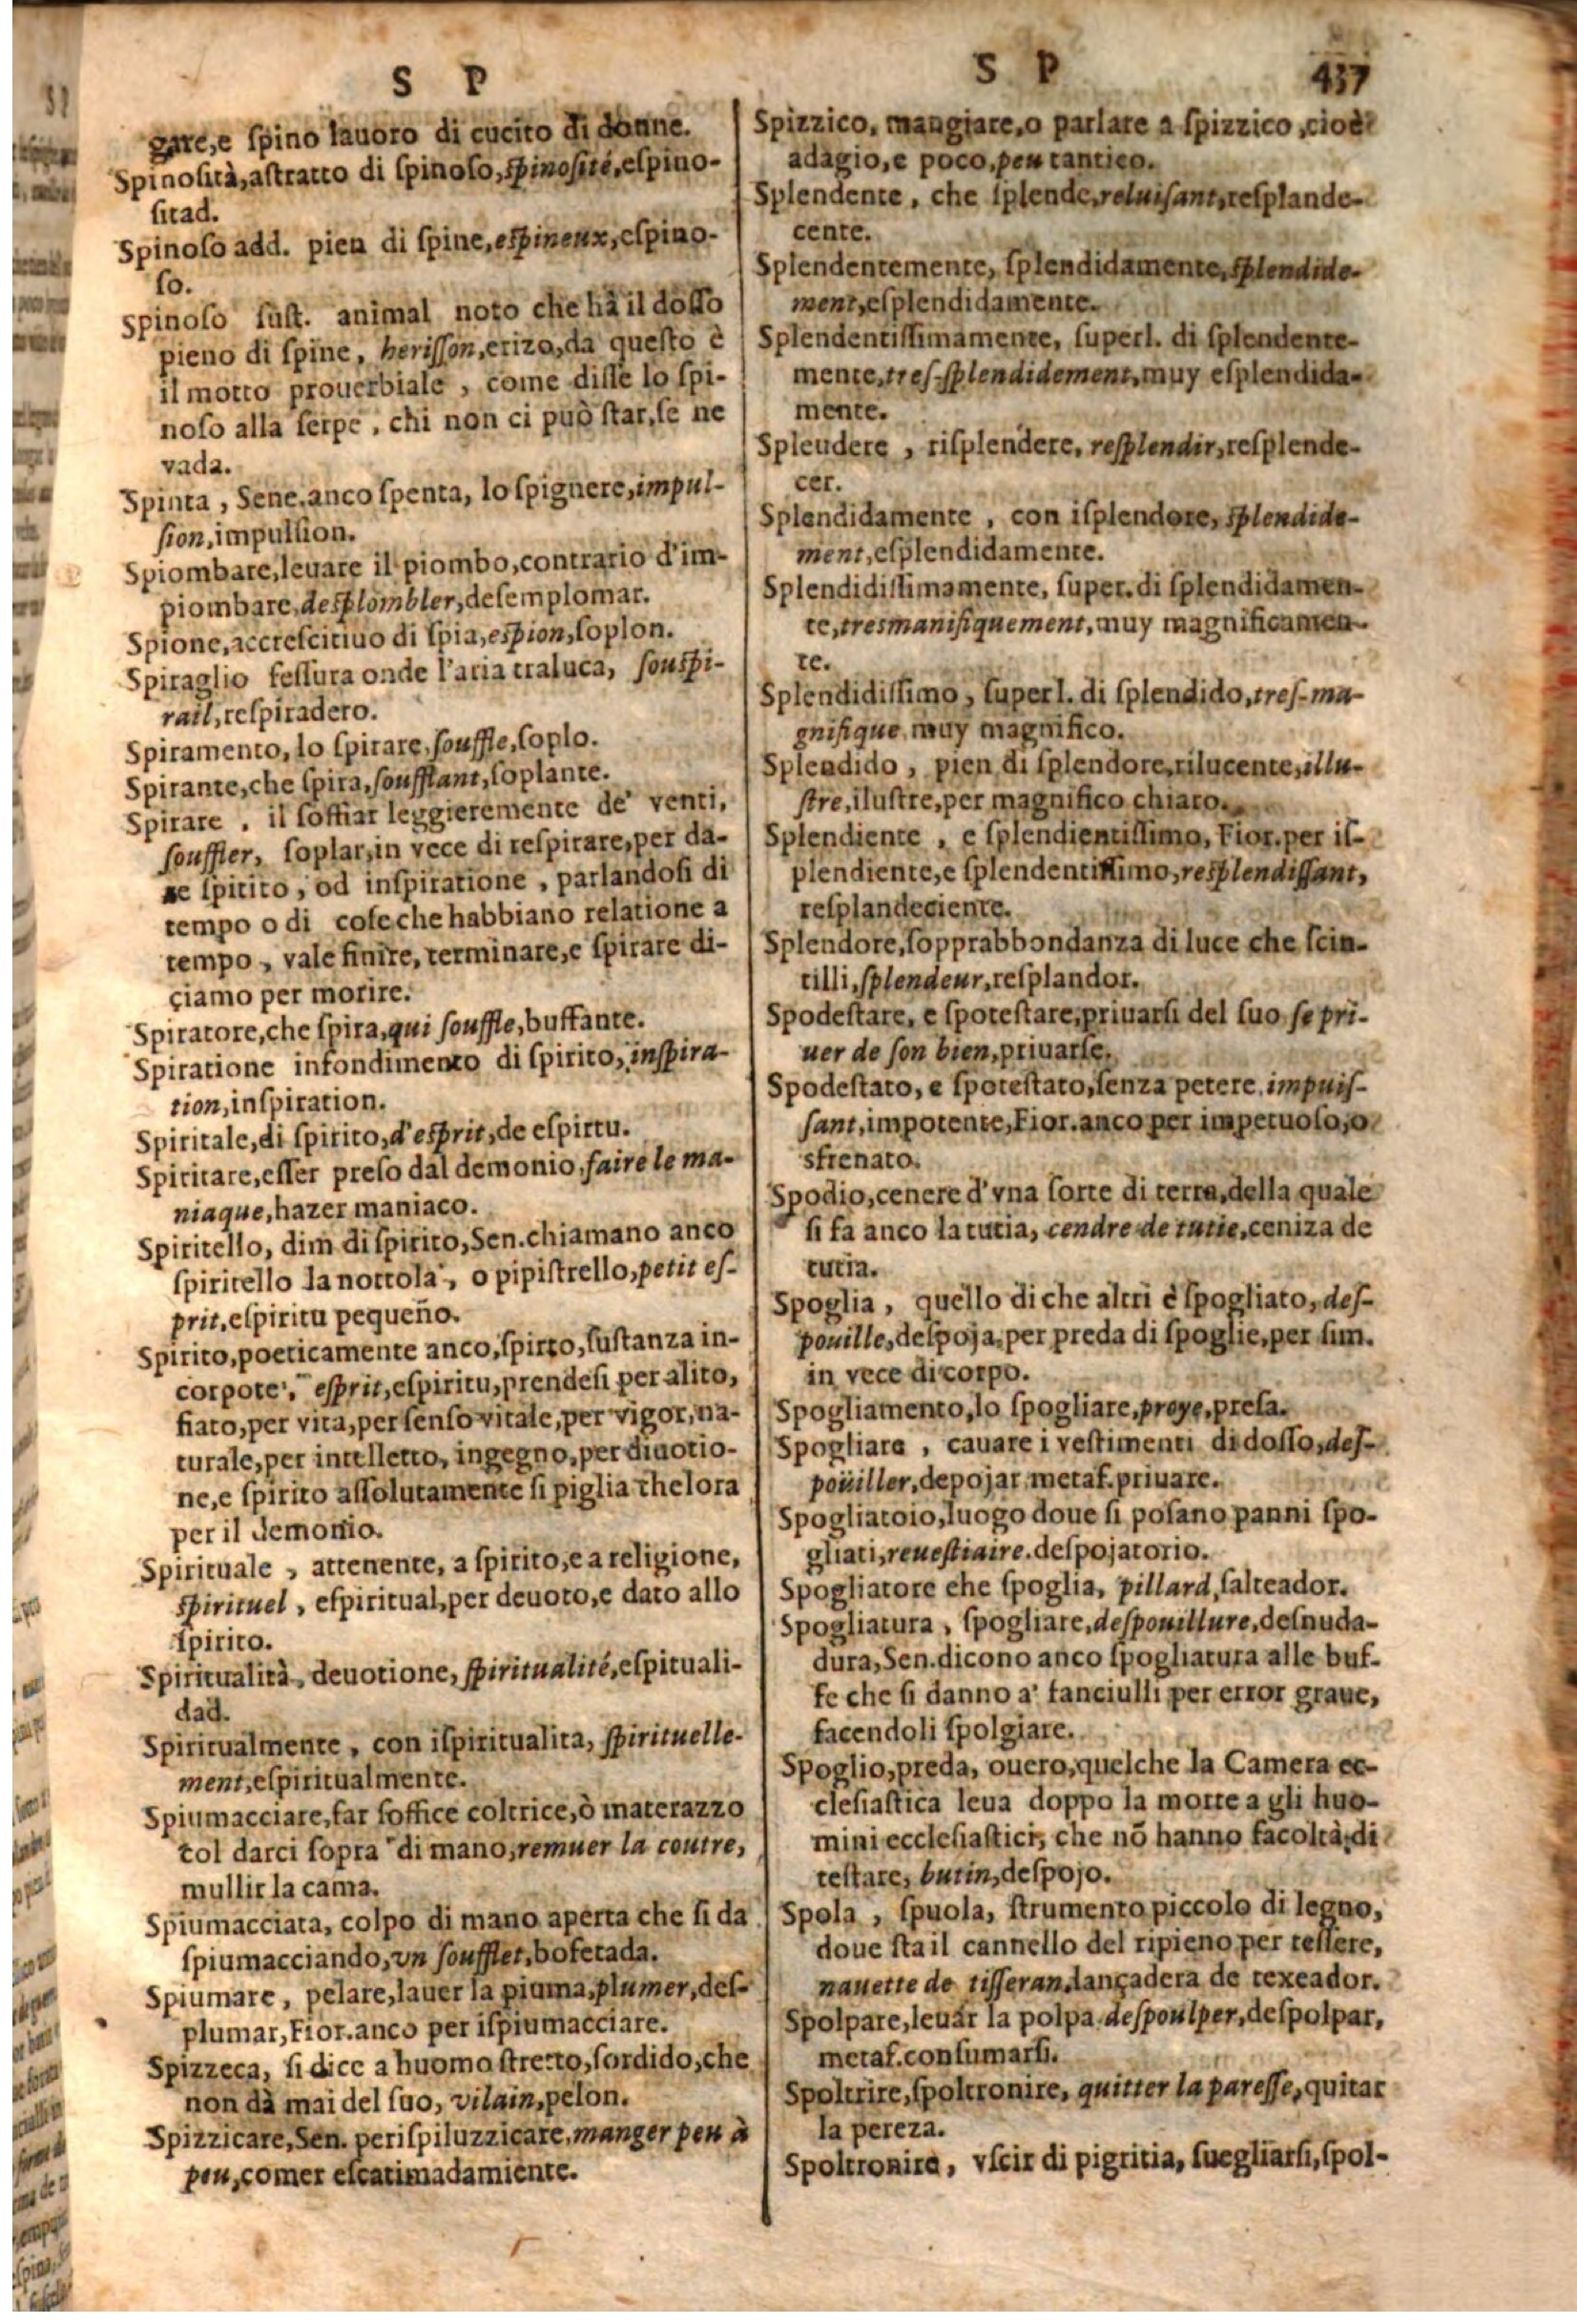 S P
gare,e ſpino lauoro di cucito di donne.
Spinoſità,aſtratto di ſpinoſo,ſpinoſité,eſpino-
ſitad.
Spinoſo add. pien di ſpine,eſpineux,eſpino-
ſo.
Spinoſo ſuſt. animal noto che hà il doſſo
pieno di ſpine, heriſſon,erizo,da queſto è
il motto prouerbiale , come diſſe lo ſpi-
noſo alla ſerpe , chi non ci può ſtar,ſe ne
vada.
Spinta , Sene.anco ſpenta, lo ſpignere,impul-
ſion,impulſion.
Spiombare,leuare il piombo,contrario d'im-
piombare,deſplombler,deſemplomar.
Spione,accreſcitiuo di ſpia,eſpion,ſoplon.
Spiraglio feſſura onde l'aria traluca, ſouſpi-
rail,reſpiradero.
Spiramento, lo ſpirare,ſouffle,ſoplo.
Spirante,che ſpira,ſoufflant,ſoplante.
Spirare , il ſoffiar leggieremente de' venti,
ſouffler, ſoplar,in vece di reſpirare,per da-
re ſpirito , od inſpiratione , parlandoſi di
tempo o di coſe che habbiano relatione a
tempo , vale finire, terminare,e ſpirare di-
çiamo per morire.
Spiratore,che ſpira,qui ſouffle,buffante.
Spiratione infondimento di ſpirito, inſpira-
tion,inſpiration.
Spiritale,di ſpirito,d'eſprit,de eſpirtu.
Spiritare,eſſer preſo dal demonio,faire le ma-
niaque,hazer maniaco.
Spiritello, dim di ſpirito,Sen.chiamano anco
ſpiritello la nottola , o pipiſtrello,petit eſ-
prit,eſpiritu pequeño.
Spirito,poeticamente anco,ſpirto,ſuſtanza in-
corpore, eſprit,eſpiritu,prendeſi per alito,
fiato,per vita,per ſenſo vitale,per vigor,na-
turale,per intelletto, ingegno,per diuotio-
ne,e ſpirito aſſolutamente ſi piglia thelora
per il demonio.
Spirituale , attenente, a ſpirito,e a religione,
ſpirituel , eſpiritual,per deuoto,e dato allo
ſpirito.
Spiritualità, deuotione, ſpiritualité,eſpituali-
dad.
Spiritualmente , con iſpiritualita, ſpirituelle-
ment,eſpiritualmente.
Spiumacciare,far ſoffice coltrice,ò materazzo
col darci ſopra di mano,remuer la coutre,
mullir la cama.
Spiumacciata, colpo di mano aperta che ſi da
ſpiumacciando,vn ſoufflet,bofetada.
Spiumare , pelare,lauer la piuma,plumer,deſ-
plumar,Fior.anco per iſpiumacciare.
Spizzeca, ſi dice a huomo ſtretto,ſordido,che
non dà mai del ſuo, vilain,pelon.
Spizzicare,Sen. periſpiluzzicare,manger peu à
peu,comer eſcatimadamiente.
S P 437
Spizzico, mangiare,o parlare a ſpizzico ,cioè
adagio,e poco,peu tantico.
Splendente , che ſplende,reluiſant,reſplande-
cente.
Splendentemente, ſplendidamente,ſplendide-
ment,eſplendidamente.
Splendentiſſimamente, ſuperl. di ſplendente-
mente,tres-ſplendidement,muy eſplendida-
mente.
Spleudere , riſplendere, reſplendir,reſplende-
cer.
Splendidamente , con iſplendore, ſplendide-
ment,eſplendidamente.
Splendidiſſimamente, ſuper. di ſplendidamen-
te,tresmanifiquement,muy magnificamen-
te.
Splendidiſſimo , ſuperl. di ſplendido,treſ-ma-
gnifique,muy magnifico.
Splendido , pien di ſplendore,rilucente,illu-
ſtre,iluſtre,per magnifico chiaro.
Splendiente , e ſplendientiſſimo, Fior.per iſ-
plendiente,e ſplendentiſſimo,reſplendiſſant,
reſplandeciente.
Splendore,ſopprabbondanza di luce che ſcin-
tilli,ſplendeur,reſplandor.
Spodeſtare, e ſpoteſtare,priuarſi del ſuo ſe pri-
uer de ſon bien,priuarſe.
Spodeſtato, e ſpoteſtato,ſenza petere,impuiſ-
ſant,impotente,Fior.anco per impetuoſo,o
sfrenato.
Spodio,cenere d'vna ſorte di terra,della quale
ſi fa anco la tutia, cendre de tutie,ceniza de
tutia.
Spoglia , quello di che altri è ſpogliato, deſ-
pouille,deſpoja,per preda di ſpoglie,per ſim.
in vece di corpo.
Spogliamento,lo ſpogliare,proye,preſa.
Spogliare , cauare i veſtimenti di doſſo,deſ-
poüiller,depojar metaf.priuare.
Spogliatoio,luogo doue ſi poſano panni ſpo-
gliati,reueſtiaire.deſpojatorio.
Spogliatore ehe ſpoglia, pillard,ſalteador.
Spogliatura , ſpogliare,deſpouillure,deſnuda-
dura,Sen.dicono anco ſpogliatura alle buf-
fe che ſi danno a' fanciulli per error graue,
facendoli ſpolgiare.
Spoglio,preda, ouero,quelche la Camera ec-
cleſiaſtica leua doppo la morte a gli huo-
mini eccleſiaſtici, che nõ hanno facoltà,di
teſtare, butin,deſpojo.
Spola , ſpuola, ſtrumento piccolo di legno,
doue ſta il cannello del ripieno per teſſere,
nauette de tiſſeran,lançadera de texeador.
Spolpare,leuàr la polpa.deſpoulper,deſpolpar,
metaf.conſumarſi.
Spoltrire,ſpoltronire, quitter la pareſſe,quitar
la pereza.
Spoltronire, vſcir di pigritia, ſuegliarſi,ſpol-